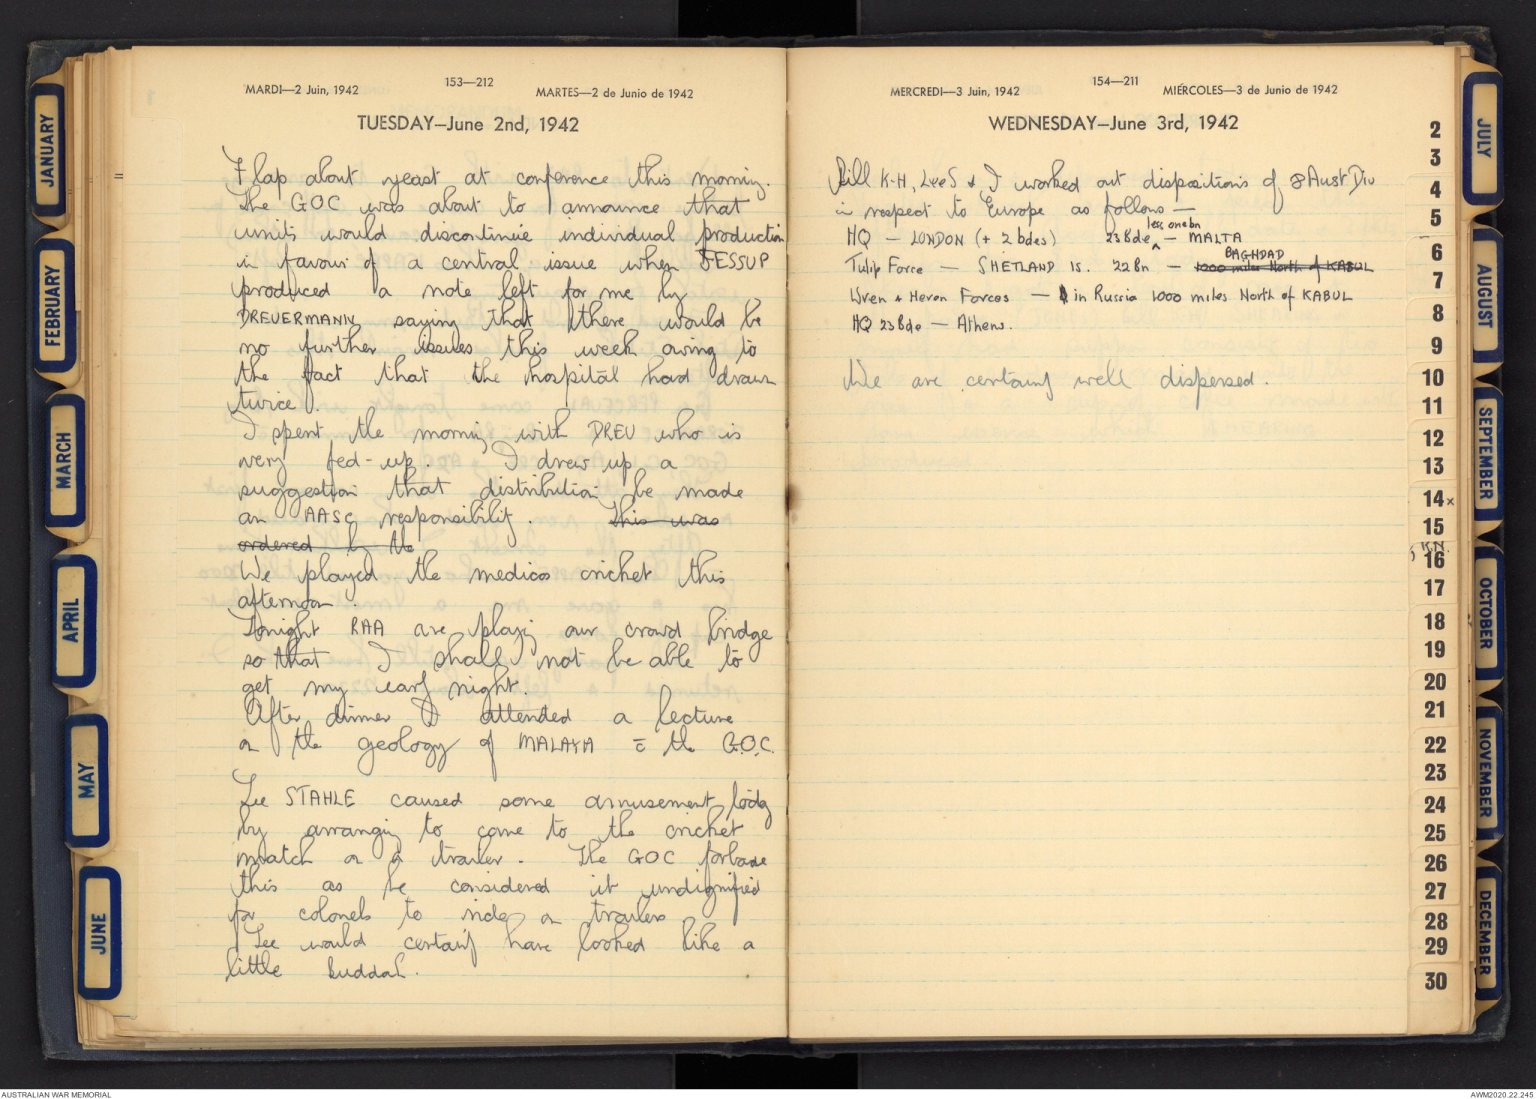 153—212
MARDI—2 Juin, 1942
MARTES—2 de Junio de 1942
TUESDAY—June 2nd, 1942
Flap about yeast at conference this morning.
The GOC was about to announce that
units would discontinue individual production
in favour of a central issue when JESSUP
produced a note left for me by
DREVERMANN saying that there would be
no further issues this week owing to
the fact that the hospital had drawn
twice.
I spent the morning with DREV who is
very fed-up. I drew up a
suggestion that distribution be made
an AASC responsibility. This was
ordered by the
We played the medicos cricket this
afternoon.
Tonight RAA are playing our crowd bridge
so that I shall not be able to
get my early night.
After dinner I attended a lecture
on the geology of MALAYA c̄ the G.O.C.
Lee STAHLE caused some amusement today
by arranging to come to the cricket
match on a trailer. The GOC forbade
this as he considered it undignified
for colonels to ride on trailers
Lee would certainly have looked like a
little Buddah.
154—211
MERCREDI—3 Juin, 1942
MIÉRCOLES—3 de Junio de 1942
WEDNESDAY—June 3rd, 1942
Bill K-H, Lee S & I worked out dispositions of 8 Aust Div
in respect to Europe as follows —
HQ — LONDON (+ 2 bdes) 23 Bde less one bn — MALTA
Tulip Force — SHETLAND IS. 22 Bn — 1000 miles North of KABUL BAGHDAD
Wren & Heron Forces — in Russia 1000 miles North of KABUL
HQ 23 Bde — Athens.
We are certainly well dispersed.
JANUARY
FEBRUARY
MARCH
APRIL
MAY
JUNE
2
3
4
5
6
7
8
9
10
11
12
13
14 x
15
K.N.
16
17
18
19
20
21
22
23
24
25
26
27
28
29
30
JULY
AUGUST
SEPTEMBER
OCTOBER
NOVEMBER
DECEMBER
AUSTRALIAN WAR MEMORIAL
AWM2020.22.245